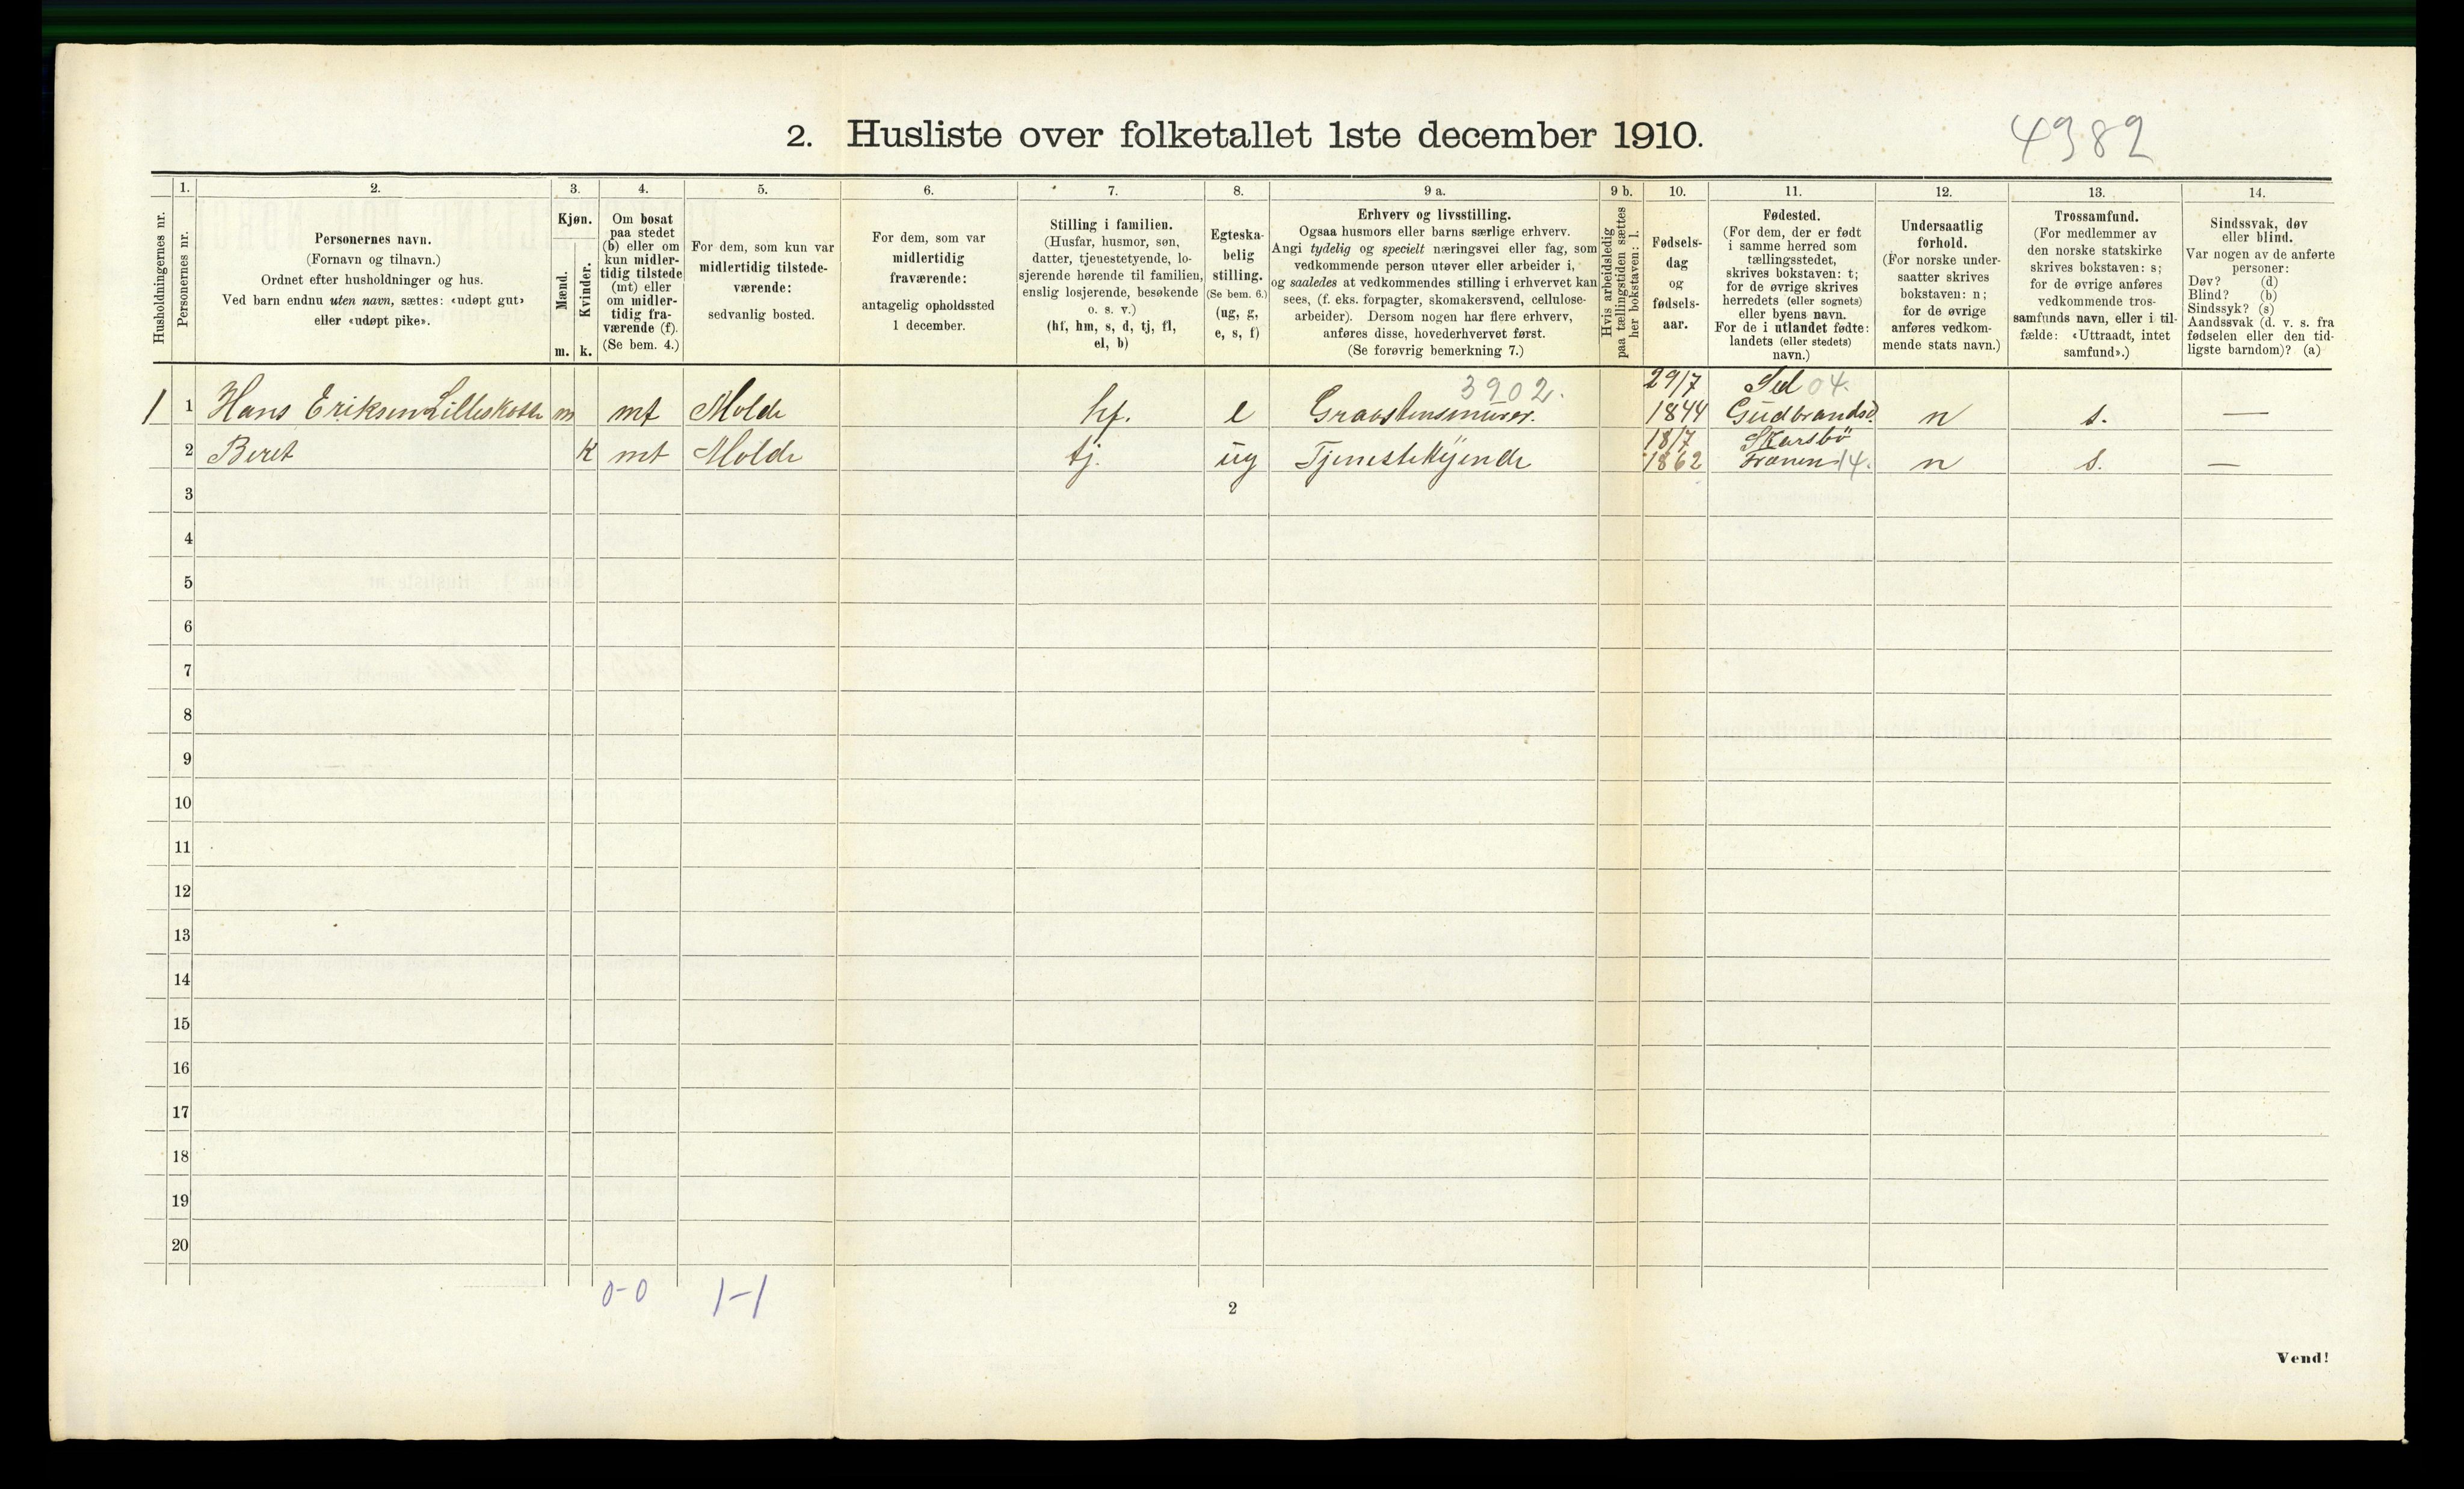 2. Husliste over folketallet 1ste december 1910.
4382
Husholdningernes nr.
1.
Personernes nr.
2.
Personernes navn.
(Fornavn og tilnavn.)
Ordnet efter husholdninger og hus.
Ved barn endnu uten navn, sættes: «udøpt gut»
eller «udøpt pike».
3.
Kjøn.
Mænd.
Kvinder.
m. k.
4.
Om bosat
paa stedet
(b) eller om
kun midler-
tidig tilstede
(mt) eller
om midler-
tidig fra-
værende (f).
(Se bem. 4.)
5.
For dem, som kun var
midlertidig tilstede-
værende:
sedvanlig bosted.
6.
For dem, som var
midlertidig
fraværende:
antagelig opholdssted
1 december.
7.
Stilling i familien.
(Husfar, husmor, søn,
datter, tjenestetyende, lo-
sjerende hørende til familien,
enslig losjerende, besøkende
o. s. v.)
(hf, hm, s, d, tj, fl,
el, b)
8.
Egteska-
belig
stilling.
(Se bem. 6.)
(ug, g,
e, s, f)
9 a.
Erhverv og livsstilling.
Ogsaa husmors eller barns særlige erhverv.
Angi tydelig og specielt næringsvei eller fag, som
vedkommende person utøver eller arbeider i,
og saaledes at vedkommendes stilling i erhvervet kan
sees, (f. eks. forpagter, skomakersvend, cellulose-
arbeider). Dersom nogen har flere erhverv,
anføres disse, hovederhvervet først.
(Se forøvrig bemerkning 7.)
9 b.
Hvis arbeidsledig
paa tællingstiden sættes
her bokstaven: l.
10.
Fødsels-
dag
og
fødsels-
aar.
11.
Fødested.
(For dem, der er født
i samme herred som
tællingsstedet,
skrives bokstaven: t;
for de øvrige skrives
herredets (eller sognets)
eller byens navn.
For de i utlandet fødte:
landets (eller stedets)
navn.)
12.
Undersaatlig
forhold.
(For norske under-
saatter skrives
bokstaven: n;
for de øvrige
anføres vedkom-
mende stats navn.)
13.
Trossamfund.
(For medlemmer av
den norske statskirke
skrives bokstaven: s;
for de øvrige anføres
vedkommende tros-
samfunds navn, eller i til-
fælde: «Uttraadt, intet
samfund».)
14.
Sindssvak, døv
eller blind.
Var nogen av de anførte
personer:
Døv? (d)
Blind? (b)
Sindssyk? (s)
Aandssvak (d. v. s. fra
fødselen eller den tid-
ligste barndom)? (a)
3902. 29/7 Sel 04.
1 1 Hans Eriksen m mt Molde hf. e Graastensmurer. 1844 Gudbrandsd. n s. —
18/7 Skarsbö
2 Beret K mt Molde tj. ug 1862 Frænen 14. n s. —
3
4
5
6
7
8
9
10
11
12
13
14
15
16
17
18
19
20
0-0 1-1
2
Vend!